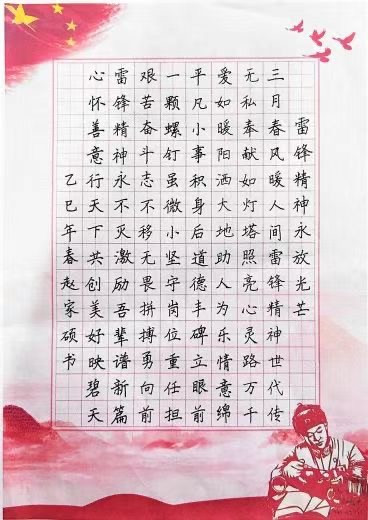 雷锋精神永放光芒
三月春风暖人间雷锋精神世代传
无私奉献如灯塔照亮心灵路万千
爱如暖阳洒大地助人为乐情意绵
平凡小事积身后道德丰碑立眼前
一颗螺钉虽微小坚守岗位重任担
艰苦奋斗志不移无畏拼搏勇向前
雷锋精神永不灭激励吾辈谱新篇
心怀善意行天下共创美好映碧天
乙巳年春赵家硕书